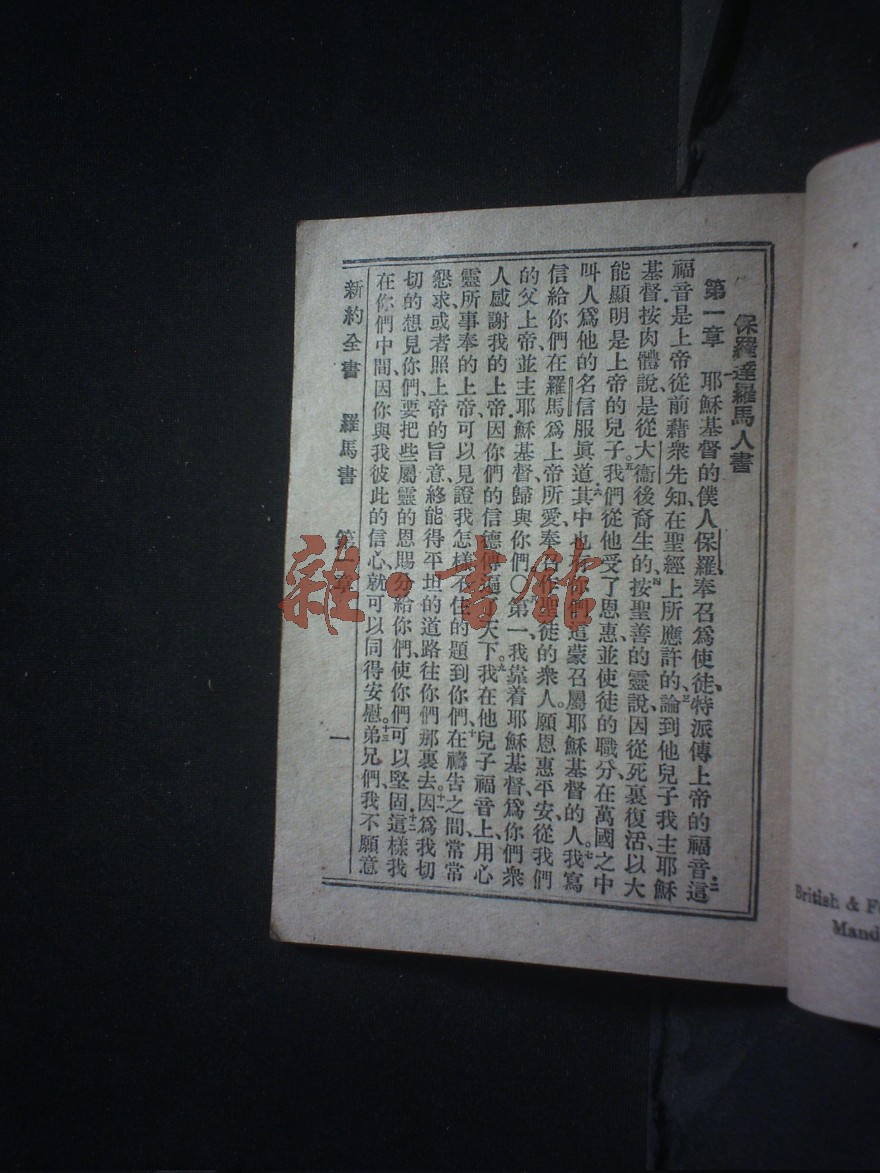 保羅達羅馬人書
第一章 耶穌基督的僕人保羅奉召爲使徒、特派傳上帝的福音。二這
福音是上帝從前藉衆先知、在聖經上所應許的、三論到他兒子我主耶穌
基督、按肉體說、是從大衞後裔生的、四按聖善的靈說、因從死裏復活、以大
能顯明是上帝的兒子。五我們從他受了恩惠、並使徒的職分、在萬國之中
叫人爲他的名信服眞道。六其中也有你們這蒙召屬耶穌基督的人。七我寫
信給你們在羅馬爲上帝所愛、奉召作聖徒的衆人、願恩惠平安、從我們
的父上帝、並主耶穌基督、歸與你們。〇第一、我靠着耶穌基督、爲你們衆
人感謝我的上帝、因你們的信德傳遍了天下。九我在他兒子福音上、用心
靈所事奉的上帝、可以見證我怎樣不住的題到你們、十在禱告之間、常常
懇求、或者照上帝的旨意、終能得平坦的道路往你們那裏去。十一因爲我切
切的想見你們、要把些屬靈的恩賜分給你們、使你們可以堅固。十二這樣我
在你們中間、因你與我彼此的信心、就可以同得安慰。十三弟兄們、我不願意
新約全書 羅馬書 第一章 一
British & F
Mand
雜·書館